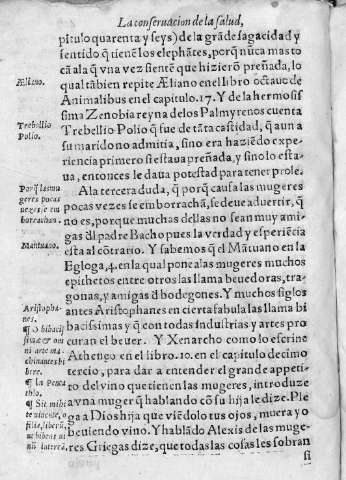 La conseruacion de la salud,
pitulo quarenta y seys) de la grãde sagacidad y
sentido q̃ tienẽ los elephãtes, porq̃ nũca mas to
cã ala q̃ vna vez sientẽ que hizierõ preñada, lo
qual tãbien repite Æliano en el libro octauo de
Animalibus en el capitulo.17. Y de la hermosis
sima Zenobia reyna delos Palmyrenos cuenta
Trebellio Polio q̃ fue de tãta castidad, q̃ aun a
su marido no admitia, sino era haziẽdo experiencia
primero si estaua preñada, y si no lo esta-
ua, entonces le daua potestad para tener prole.
A la tercera duda, q̃ porq̃ causa las mugeres
pocas vezes se emborrachã, se deue aduertir, q̃
no es, porque muchas dellas no sean muy ami-
gas dl padre Bacho pues la verdad y esperiẽcia
esta al cõtrario. Y sabemos q̃ el Mãtuano en la
Egloga,4. en la qual pone a las mugeres muchos
epithetos entre otros las llama beuedoras, tra-
gonas, y amigas d bodegones. Y muchos siglos
antes Aristophanes en cierta fabula las llama bi
bacissimas y q̃ con todas Industrias y artes pro
curan el beuer. Y Xenarcho como lo escriue
Atheneo en el libro.10. en el capitulo decimo
tercio, para dar a entender el grande appeti-
to del vino que tienen las mugeres, introduze
a vna muger q̃ hablando con su hija le dize. Ple
ga a Dios hija que viẽdolo tus ojos, muera yo
beuiendo vino. Y hablãdo Alexis de las muge-
res Griegas dize, que todas las cosas les sobran
si
Æliano.
Trebellio
Polio.
Porq̃ las mu
geres pocas
vezes se em
borrachan.
Mantuano.
Aristopha-
nes.
¶ O bibacis
simæ & om
ni arte ma
chinantes bi
bere.